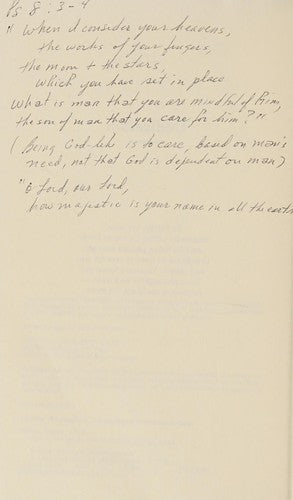 Ps 8 : 3-4
"When I consider your heavens,
the works of your fingers,
the moon + the stars,
which you have set in place
What is man that you are mindful of him,
the son of man that you care for him?"
(Being God-like is to care, based on man's
need, not that God is dependent on man)
"O Lord, our Lord,
how majestic is your name in all the earth